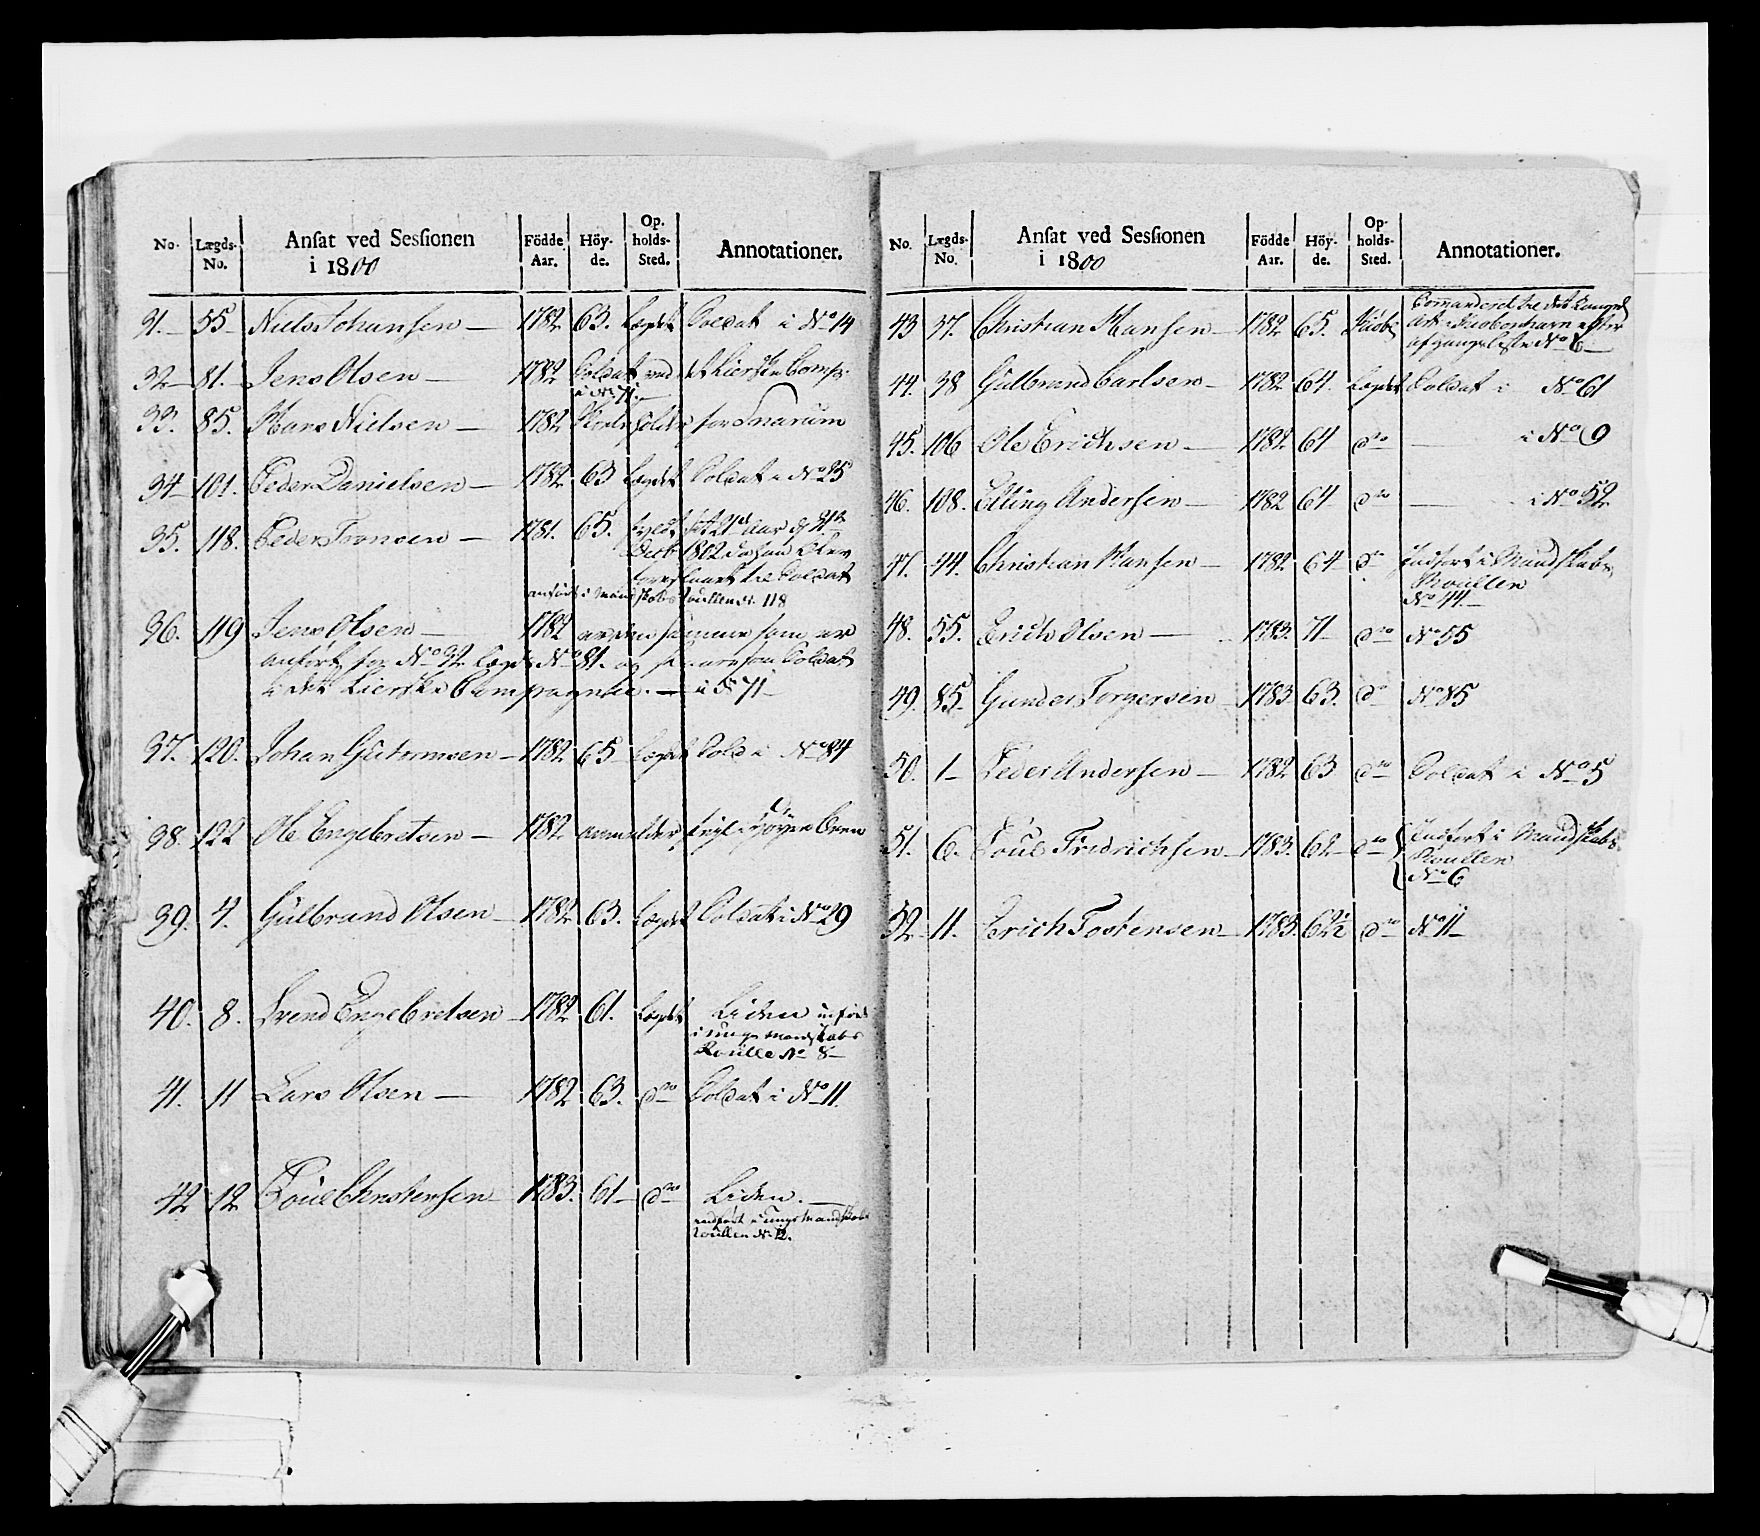 No. Lægds-No. Ansat ved Sessionen i 1800 Födde Aar. Höy-de. Op-holds-Sted. Annotationer.
31. 55 Niels Johansen 1782 63. Lægdet Soldat i No 14
32 81. Jens Olsen 1782 Soldat ved det Lierske Comp:
i No 71.
33. 85. Hans Nielsen 1782 for Snarum
34 101. Peder Danielsen 1782 63 Lægdet Soldat i No 25
35. 118. Peder 1781. 65. 21 Aar d 31te
Decb 1802 da han
til Soldat
anført i Mandskabs Roullen No 118
36. 119 Jens Olsen 1782 er den samme som er
anført for No 32 Lægd No 81. og Soldat
i det Lierske Compagnie. i No 71
37. 120. Johan Guttormsen 1782 65 Lægdet Sold i No 84
38. 122 Ole Engebretsen 1782
39. 4. Gülbrand Olsen 1782 63. Lægdet Soldat i No 29
40. 8. Svend Engebretsen 1782 61. Lægdet Liden indført
i ung Mandskabs
Roülle No 8
41. 11 Lars Olsen 1782 63. do Soldat i No 11.
42 12 Poül Christensen 1783. 61 do Liden.
indført i ungt Mandskabs
Roullen No 12.
No. Lægds-No. Ansat ved Sessionen i 1800 Födde Aar. Höy-de. Op-holds-Sted. Annotationer.
43 37. Christian Hansen 1782 65. Comanderet til det
Art: i Kiøbenhavn efter
afgangsliste No 6
44. 38 Gülbrand Carlsen 1782 64. Lægdet Soldat i No 61
45. 106 Ole Erichsen 1782 64 do i No 9
46. 108. Elling Andersen 1782 64 do i No 52
47. 44. Christian Hansen 1782 64 do Indført i Mandskabs
Roullen
No 44.
48. 55. Erich Olsen 1783. 71 do No 55
49. 85. Gunder Torgersen 1783. 63. do No 85
50. 1 Peder Andersen 1782 63 do Soldat i No 5
51. 6. Poül Fredrichsen 1783. 62 do Indført i Mandskabs
Roullen
No 6
52 11. Erich Tostensen 1783. 62½ do No 11